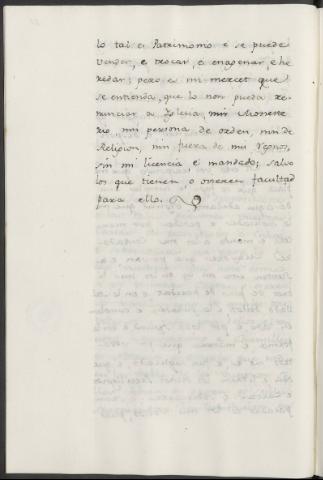 lo tal es Patrimonio e se puede
vender, e trocar, e enagenar, e he
redar; pero es mi mercet que
se entienda, que lo non pueda re-
nunciar a Iglesia, nin Moneste
rio nin persona de orden, nin de
Religion, nin fuera de mis Regnos,
sin mi licencia, e mandado; salvo
los que tienen, o ovieren facultad
para ello.